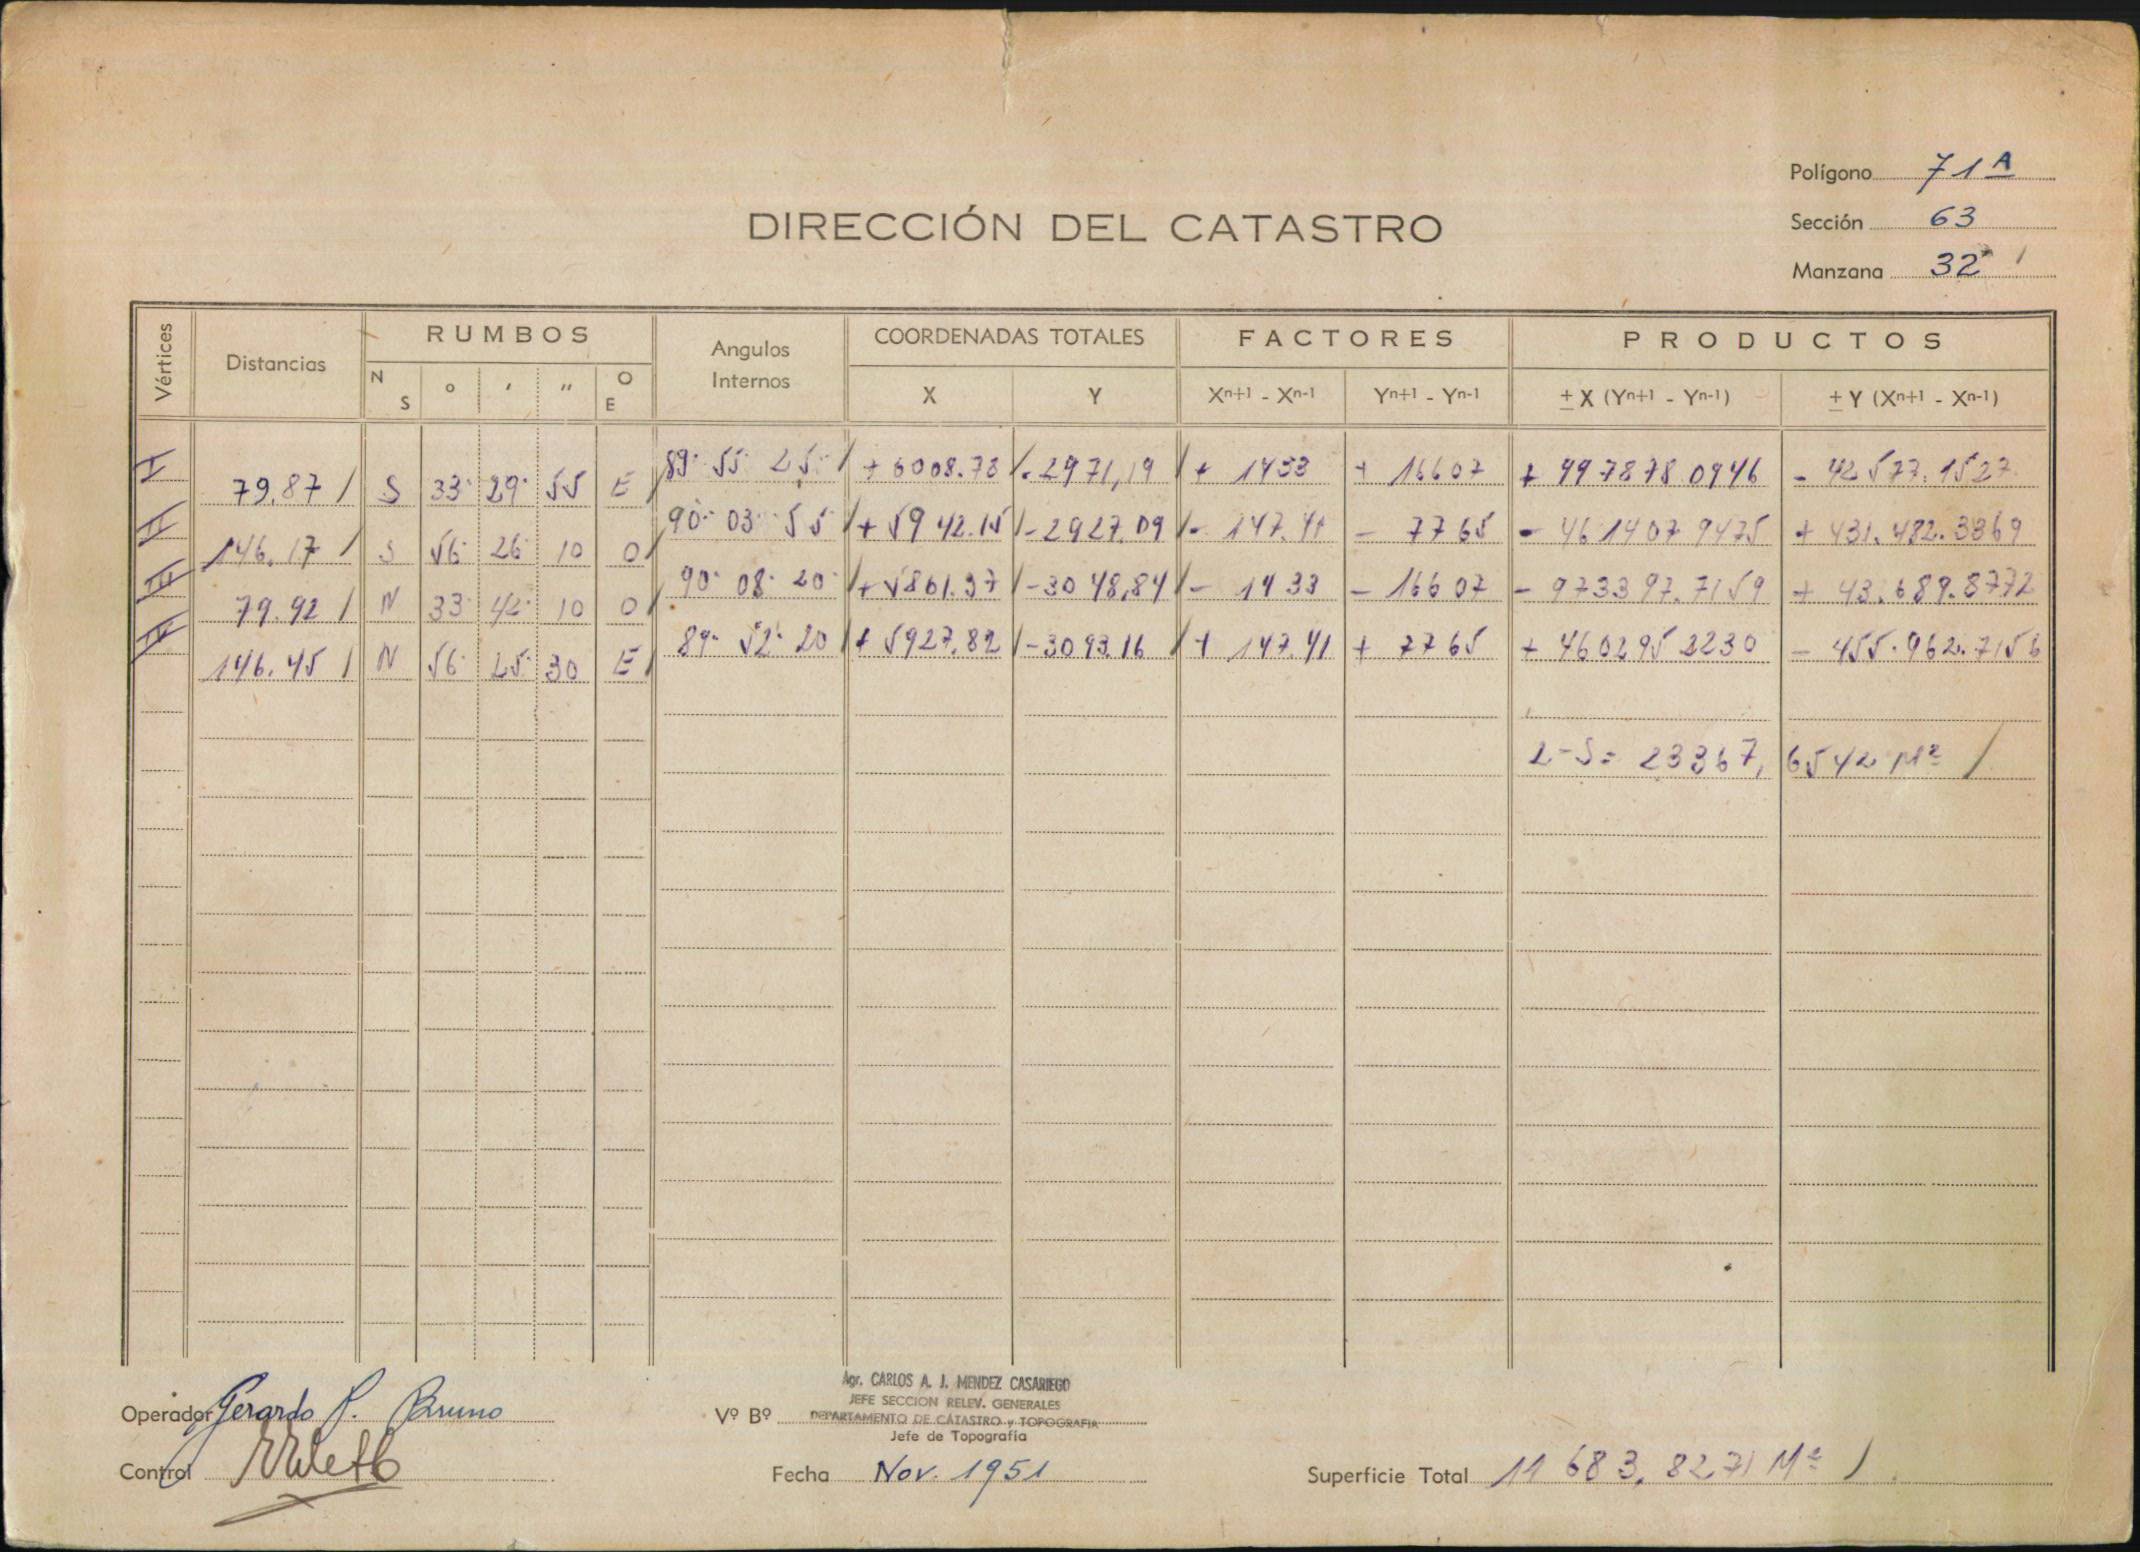 Polígono 71 A
DIRECCIÓN DEL CATASTRO
Sección 63
Manzana 32
Vértices Distancias RUMBOS Angulos Internos COORDENADAS TOTALES FACTORES PRODUCTOS
N S ° ' " O E X Y Xn+1 - Xn-1 Yn+1 - Yn-1 ± X (Yn+1 - Yn-1) ± Y (Xn+1 - Xn-1)
I 89° 55' 25" + 6008.78 - 2971,19 + 1433 + 16607 + 997878.0946 - 42577.1527
79.87 S 33° 29' 55 E
II 90° 03' 55 + 5942.15 - 2927.09 - 147.41 - 7765 - 461407 9475 + 431.482.3369
146.17 S 56° 26' 10 O
III 90° 08' 20" + 5861.37 - 3048,84 - 1433 - 16607 - 973397.7159 + 43.689.8772
79.92 N 33° 42' 10 O
IV 89° 52' 20 + 5927.82 - 3093.16 + 147.41 + 7765 + 460295 2230 - 455.962.7156
146.45 N 56° 25' 30 E
2-S = 23367,6542 M²
Agr. CARLOS A. J. MENDEZ CASARIEGO
JEFE SECCION RELEV. GENERALES
Operador Gerardo P. Bruno Vº Bº DEPARTAMENTO DE CATASTRO y TOPOGRAFIA
Jefe de Topografía
Control Fecha Nov. 1951 Superficie Total 11 683,8271 M²